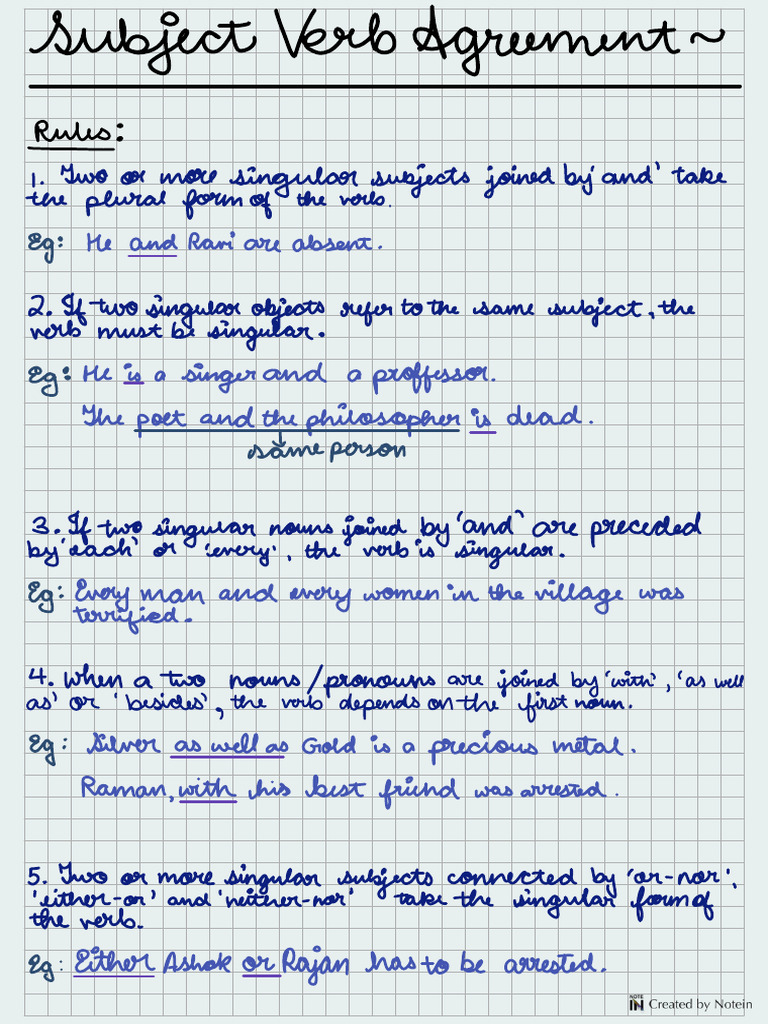 Subject Verb Agreement ~
Rules:
1. Two or more singular subjects joined by 'and' take
the plural form of the verb.
Eg: He and Ravi are absent.
2. If two singular objects refer to the same subject, the
verb must be singular.
Eg: He is a singer and a proffessor.
The poet and the philosopher is dead.
same person
3. If two singular nouns joined by 'and' are preceded
by 'each' or 'every', the verb is singular.
Eg: Every man and every women in the village was
terrified.
4. When a two nouns/pronouns are joined by 'with', 'as well
as' or 'besides', the verb depends on the first noun.
Eg: Silver as well as Gold is a precious metal.
Raman, with his best friend was arrested.
5. Two or more singular subjects connected by 'or-nor',
'either-or' and 'neither-nor' take the singular form of
the verb.
Eg: Either Ashok or Rajan has to be arrested.
NOTE
IN Created by Notein